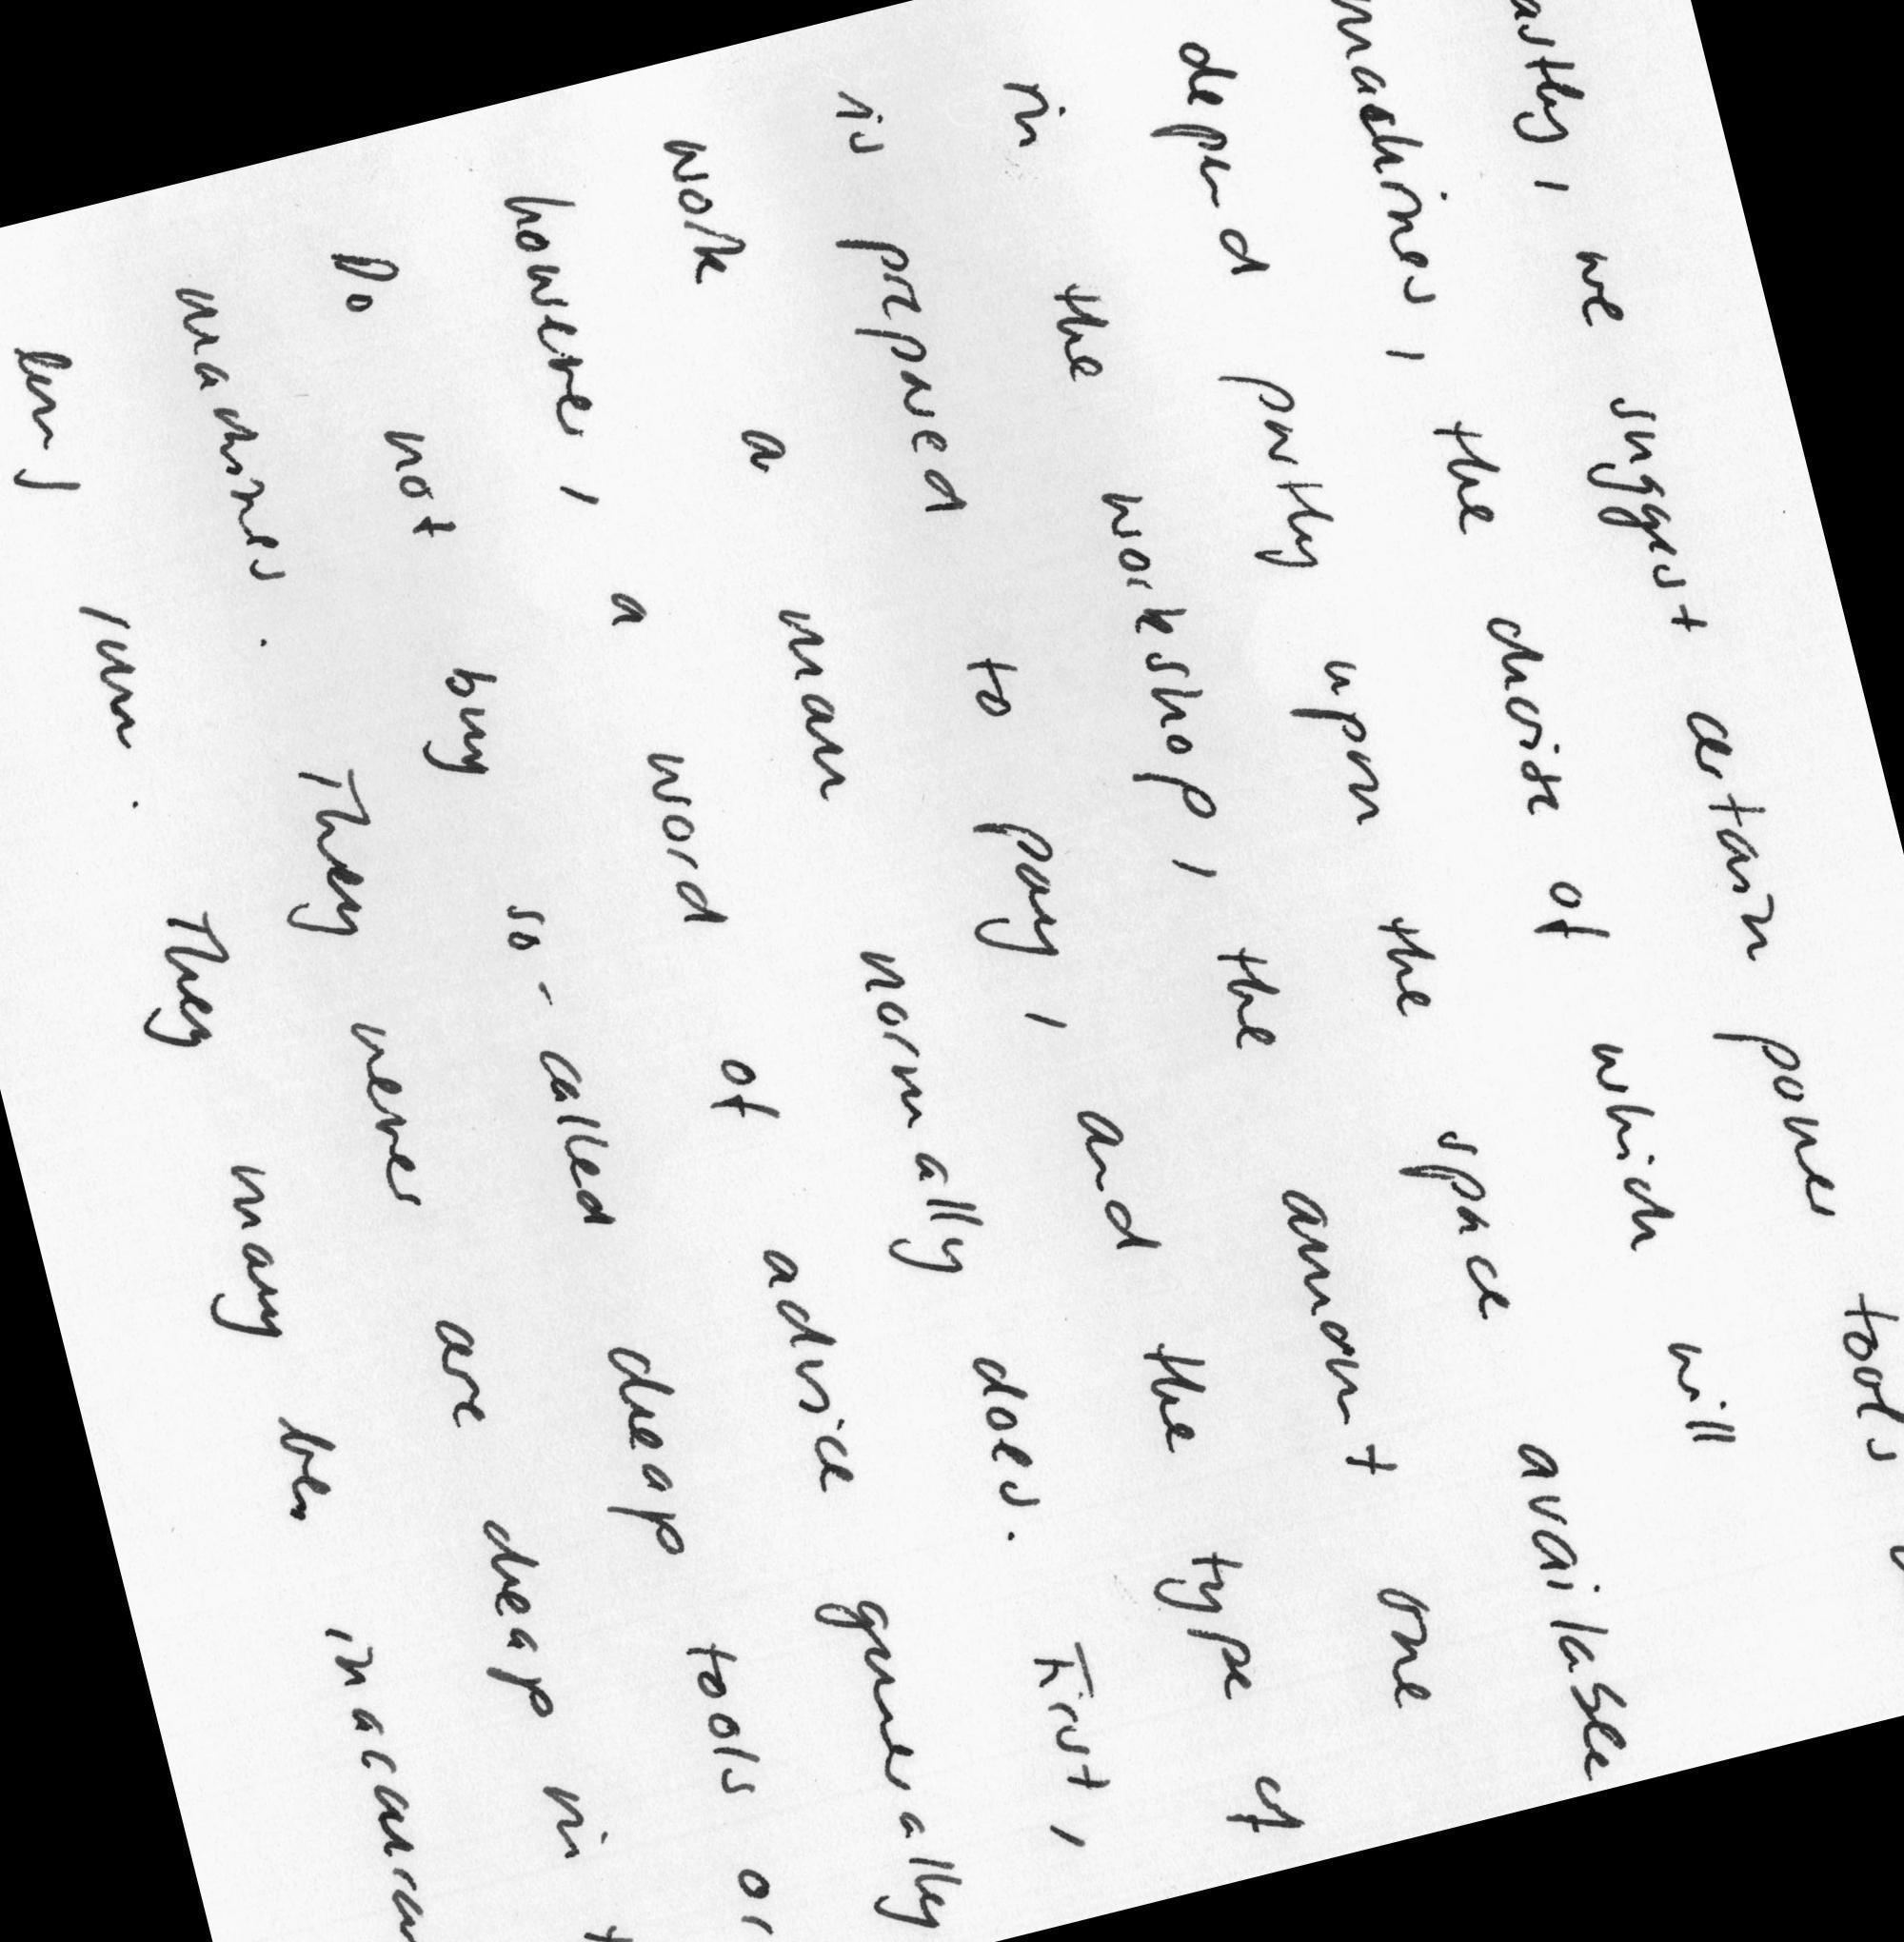 we suggest certain power tools
machines, the choice of which will
depend partly upon the space available
in the workshop, the amount one
is prepared to pay, and the type of
work a man normally does. First,
however, a word of advice generally
Do not buy so-called cheap tools or
machines. They never are cheap in
long run. They may be